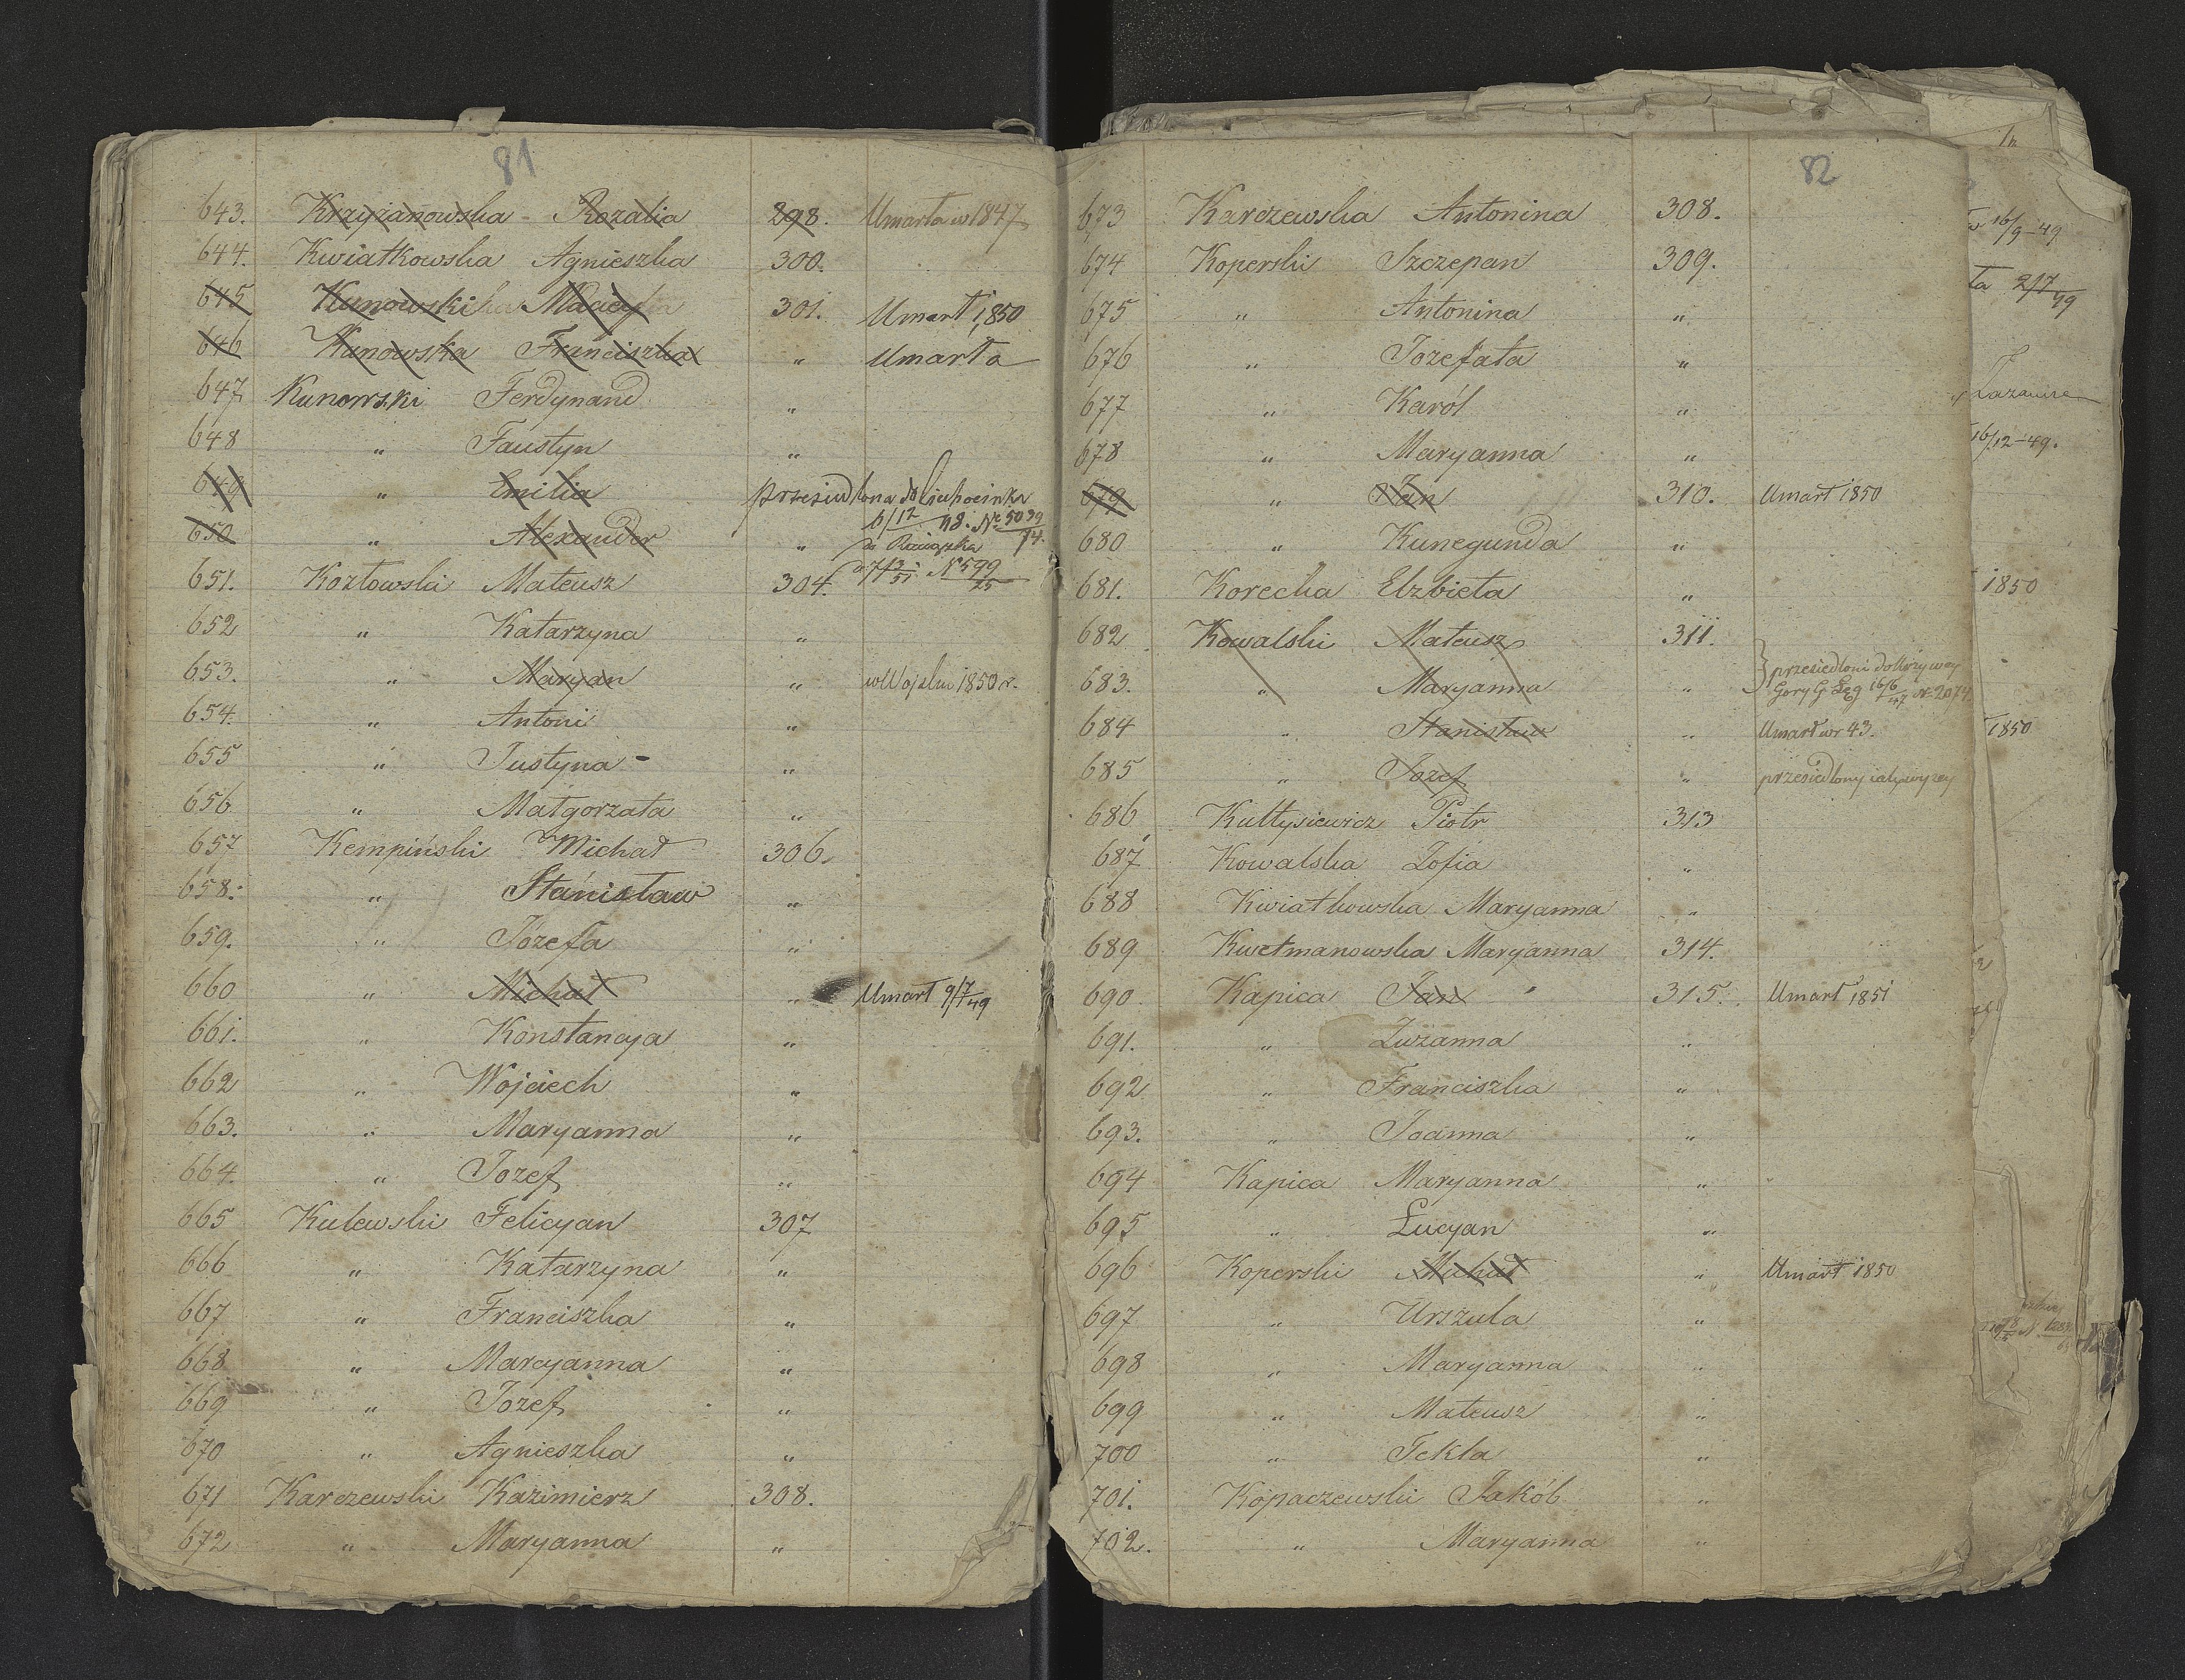 81
643. Krzyżanowska - Rozalia 298. Umarła w 1847
644. Kwiatkowska Agnieszka 300.
645 Kunowski Maciej 301. Umarł 1850
646 Kunowska Franciszka " Umarła
647 Kunowski Ferdynand "
648 " Faustyn "
649 " Emilia przesiedlona do
6/12 48. No 5039/74.
650 " Alexander "
No 599/25
651. Kozłowski Mateusz 304.
652 " Katarzyna "
653. " Maryan " w Wojsku 1850 r.
654. " Antoni "
655 " Justyna - "
656 " Małgorzata "
657 Kempiński Michał 306.
658. " Stanisław "
659. " Józefa "
660 " Michał " Umarł 9/7 49
661. " Konstancya "
662 " Wojciech "
663. " Maryanna "
664. " Jozef "
665 Kulewski Felicyan 307
666 " Katarzyna "
667 " Franciszka "
668 " Marcyanna "
669 " Jozef "
670 " Agnieszka "
671 Karczewski Kazimierz 308.
672 " Maryanna "
82
673 Karczewska Antonina 308.
674 Koperski Szczepan 309.
675 " Antonina "
676 " Jozefata "
677 " Karól "
678 " Maryanna "
679 " Jan 310. Umarł 1850
680 " Kunegunda "
681. Korecka Elzbieta "
682 Kowalski Mateusz 311.
przesiedloni do
683. " Maryanna "
Gory G 16/6 47 No 2074
684 " Stanisław " Umarł w r 43.
685 " Jozef " przesiedlony jak wyzey
686 Kułtysiewicz Piotr 313
687 Kowalska Zofia "
688 Kwiatkowska Maryanna "
689 Kwetmanowska Maryanna 314.
690. Kapica Jan 315. Umarł 1851
691. " Zuzanna "
692 " Franciszka "
693. " Joanna "
694 Kapica Maryanna "
695 " Łucyan "
696 Koperski Michał " Umarł 1850
697 " Urszula "
698 " Maryanna "
699 " Mateusz "
700 " Tekla "
701. Kopaczewski Jakób "
702. " Maryanna "
16/9-49
2/7 49
16/12-49.
1850
1850